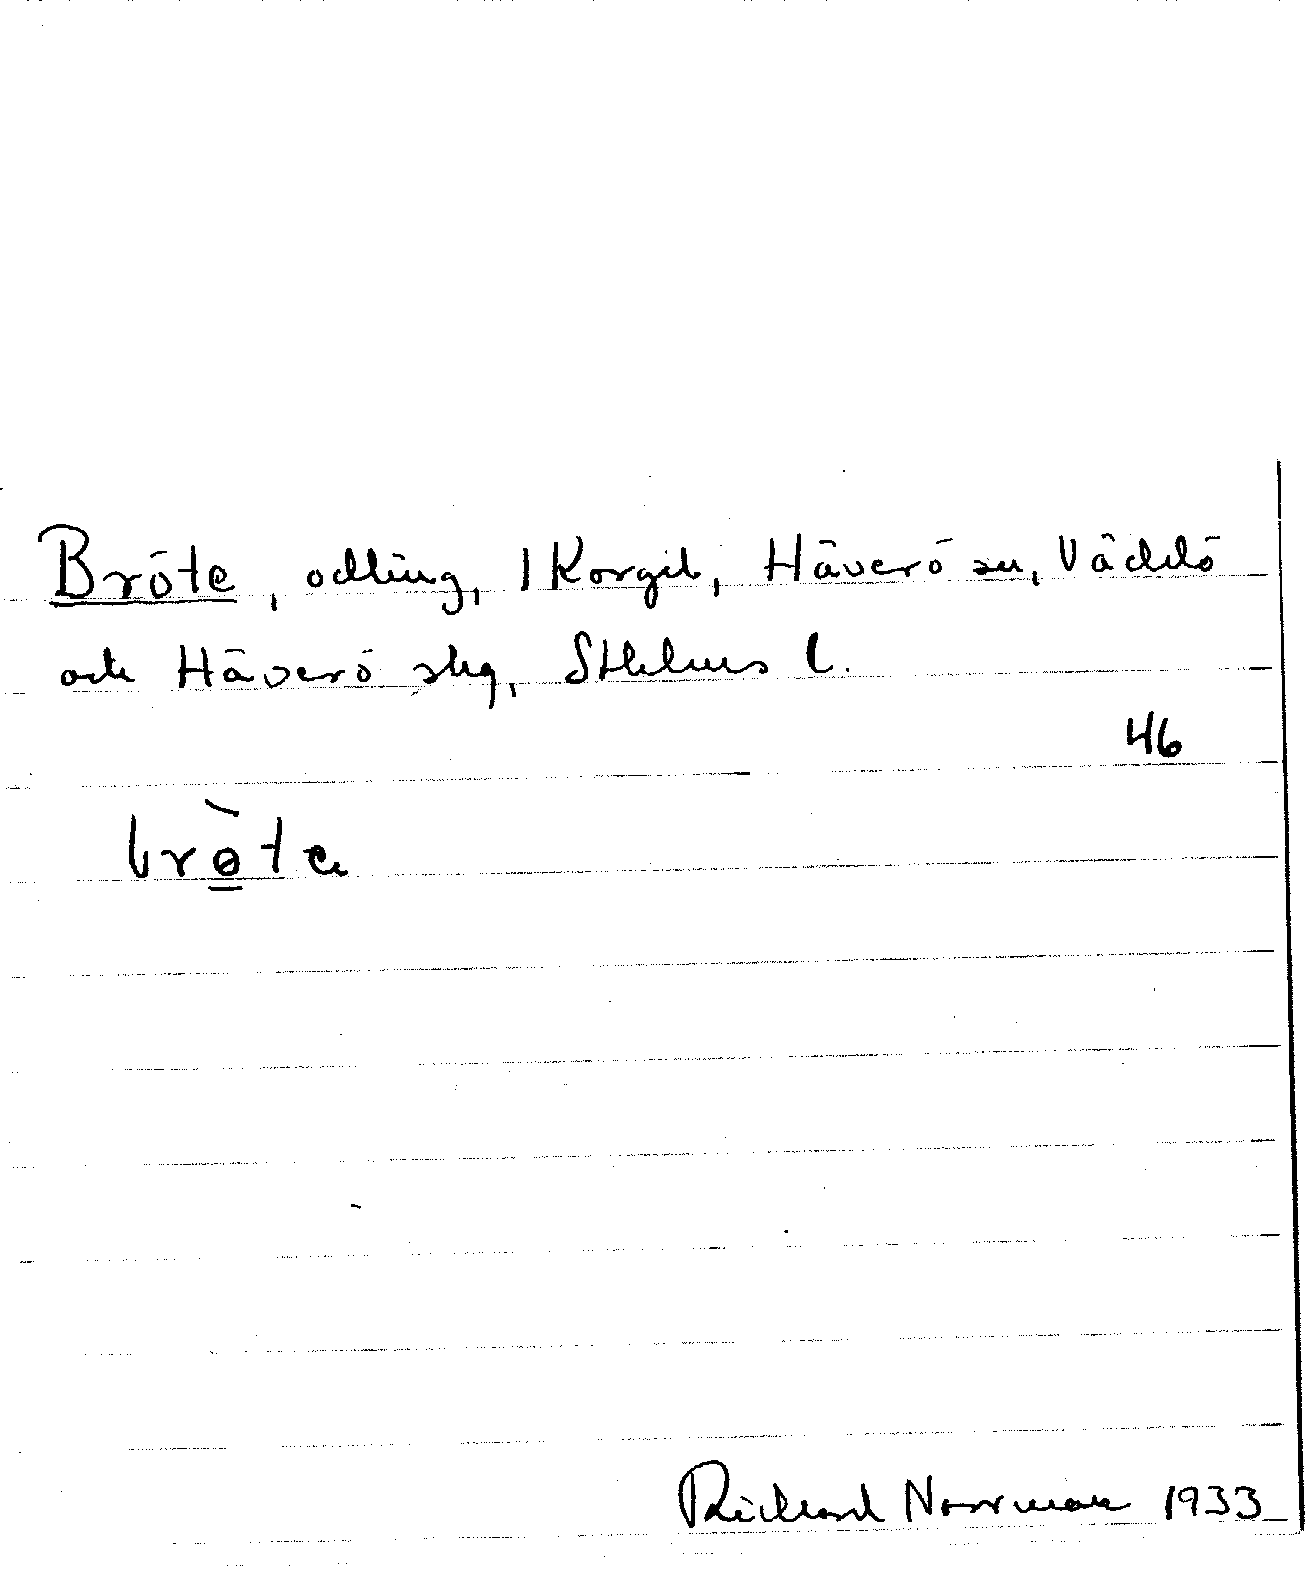 Bröte, odling, 1 Korgil, Häverö sn, Väddö
och Häverö skg, Sthlms l.
46
brɵ̀te
Richard Norrman 1933